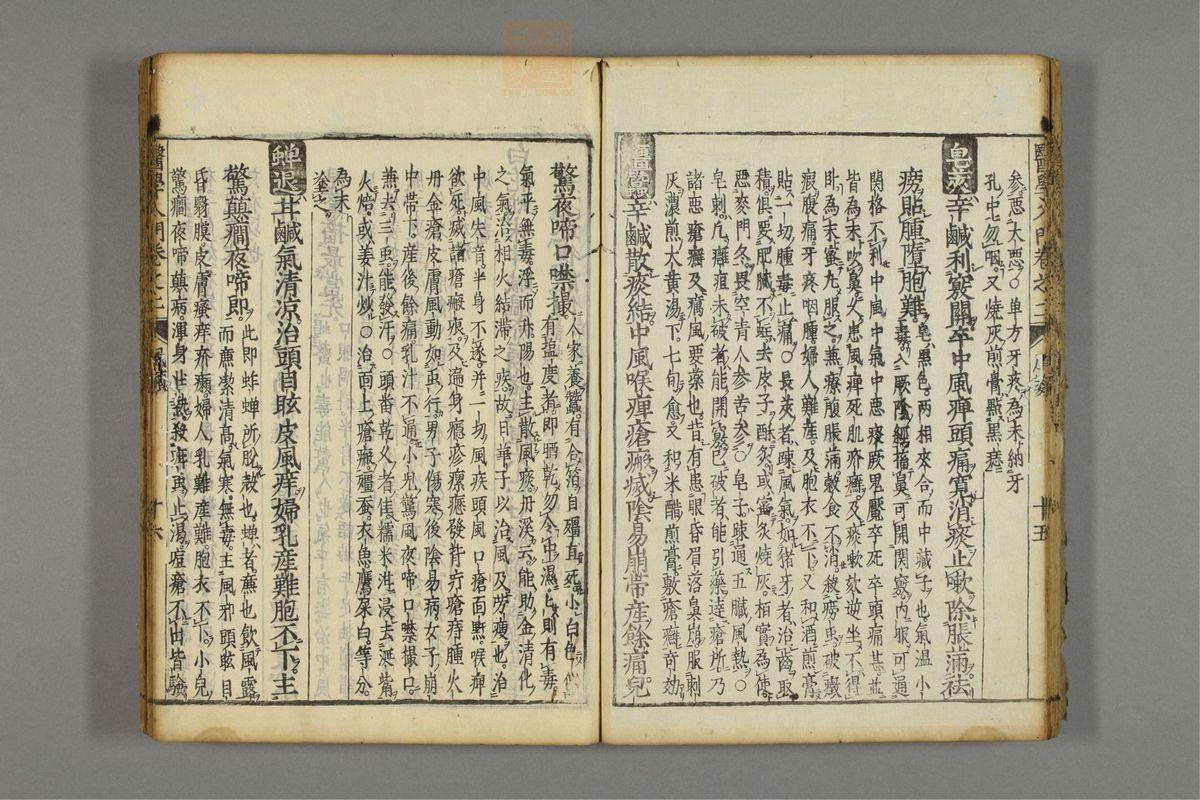 醫學入門卷之二
參惡大惡○單方牙疼為末納牙
孔中忽咽又燒灰煎膏點黑痣
皂莢辛鹹利竅關卒中風痺頭痛寬消痰止嗽除脹滿祛
癆貼腫墮胞難
皂黑色兩相夾合而中藏子也氣溫小
毒入厥陰經搐鼻可開關竅內服可通
關格不利中風中氣中惡痰厥鬼魘卒死卒頭痛甚並
皆為末吹鼻久患風痺死肌疥癬及痰嗽欬逆坐不得
臥為末蜜丸服之兼療腹脹滿穀食不消殺癆虫破癥
瘕腹痛牙疼咽腫婦人難產及胞衣不下又和酒煎膏
貼一切腫毒止痛○長莢者疎風氣如猪牙者治齒取
積俱要肥膩不蛀去皮子酥炙或蜜炙燒灰栢實為使
惡麥門冬畏空青人參苦參○皂子疎通五臟風熱○
皂刺凡癰疽未破者能開竅已破者能引藥達瘡所乃
諸惡瘡癬及癘風要藥也昔有患眼昏眉落鼻崩服刺
灰濃煎大黃湯下七旬愈又和米醋煎膏敷瘡癬奇効
辛鹹散痰結中風喉痺瘡瘢滅陰易崩帶產餘痛兒
十五
驚夜啼口噤撮
人家養蠶有合箔自殭直死小白色似
有塩度者即晒乾勿令中濕濕則有毒
氣平無毒浮而升陽也主散風痰丹溪云能助金清化
之氣治相火結滯之疾故日華子以治風及勞瘦也治
中風失音半身不遂并一切風疾頭風口瘡面䵟喉痺
欲死滅諸瘡瘢痕及遍身癮疹瘰癧發背疔瘡痔腫火
丹金瘡皮膚風動如虫行男子傷寒後陰易病女子崩
中帶下產後餘痛乳汁不通小兒驚風夜啼口噤撮口
兼去三虫能發汗○頭番乾久者佳糯米泔浸去涎觜
火焙或姜汁炒○治面上瘡瘢殭蚕衣魚鷹屎白等分
為末
塗之
蟬退甘鹹氣清凉治頭目眩皮風痒婦乳產難胞不下主
驚癲癇夜啼即
此即蚱蟬所脫殼也蟬者
而廉潔清高氣寒無毒主風邪頭眩目
昏翳膜皮膚瘙痒疥癩婦人乳難產難胞衣不下小兒
驚癇夜啼癲病渾身壯熱殺疳虫止渴啞瘡不出皆驗
醫學入門卷之二
十六